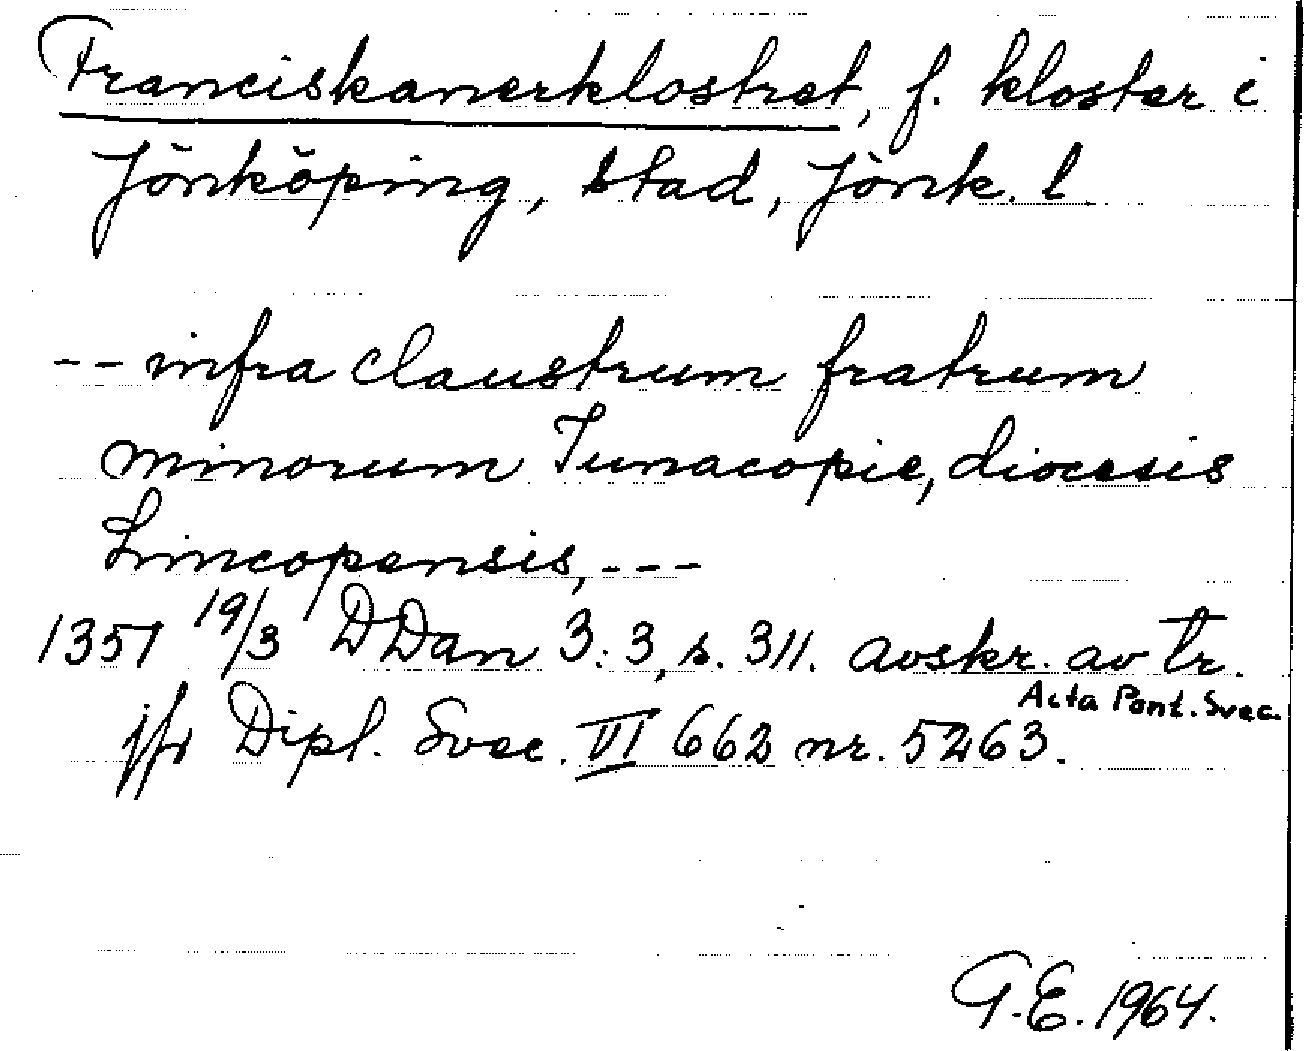 Franciskanerklostret, f. kloster i
Jönköping, stad, Jönk. l.
-- infra claustrum fratrum
minorum Junacopie, diocesis
Lincopensis, ---
1351 19/3 DDan 3:3, s. 311. avskr. av tr.
Acta Pont. Svec.
jfr Dipl. Svec. VI 662 nr. 5263.
G.E. 1964.